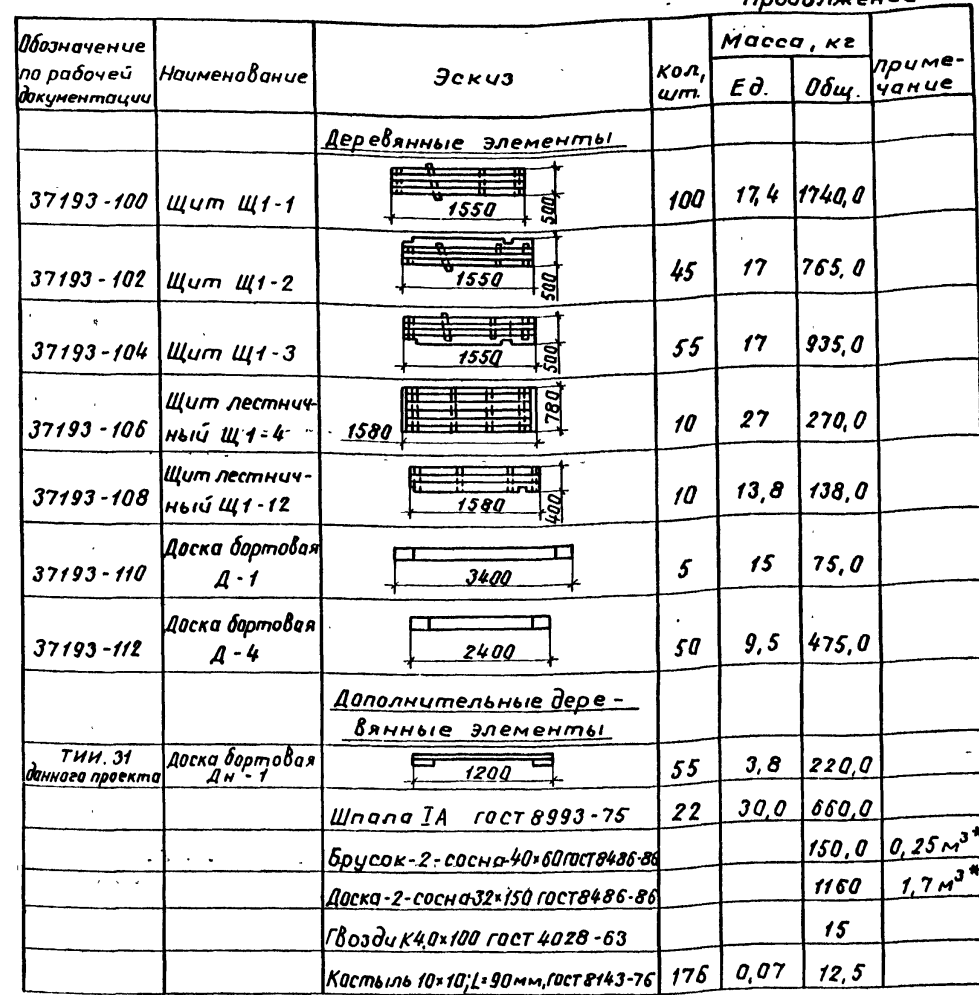 Продолжение
Обозначение по рабочей документации Наименование Эскиз Кол, шт. Масса, кг Приме-чание
Ед. Общ.
Деревянные элементы
37193-100 Щит Щ1-1 1550 500 100 17,4 1740,0
37193-102 Щит Щ1-2 1550 500 45 17 765,0
37193-104 Щит Щ1-3 1550 500 55 17 935,0
Щит лестнич-
37193-106 ный Щ1-4 1580 780 10 27 270,0
Щит лестнич-
37193-108 ный Щ1-12 1580 400 10 13,8 138,0
Доска бортовая
37193-110 Д-1 3400 5 15 75,0
Доска бортовая
37193-112 Д-4 2400 50 9,5 475,0
Дополнительные дере-
вянные элементы
ТИИ.31 Доска бортовая
данного проекта Дн-1 1200 55 3,8 220,0
Шпала IА гост 8993-75 22 30,0 660,0
Брусок-2-сосна-40×60 гост 8486-86 150,0 0,25 м³*
Доска-2-сосна-32×150 гост 8486-86 1160 1,7 м³*
Гвозди К4,0×100 гост 4028-63 15
Костыль 10×10; L=90мм, гост 8143-76 176 0,07 12,5